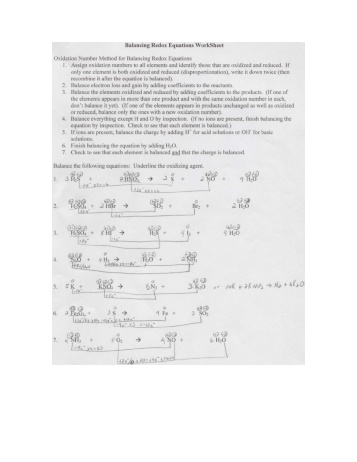 Balancing Redox Equations WorkSheet
Oxidation Number Method for Balancing Redox Equations
1. Assign oxidation numbers to all elements and identify those that are oxidized and reduced. If
only one element is both oxidized and reduced (disproportionation), write it down twice (then
recombine it after the equation is balanced).
2. Balance electron loss and gain by adding coefficients to the reactants.
3. Balance the elements oxidized and reduced by adding coefficients to the products. (If one of
the elements appears in more than one product and with the same oxidation number in each,
don't balance it yet). (If one of the elements appears in products unchanged as well as oxidized
or reduced, balance only the ones with a new oxidation number).
4. Balance everything except H and O by inspection. (If no ions are present, finish balancing the
equation by inspection. Check to see that each element is balanced.)
5. If ions are present, balance the charge by adding H⁺ for acid solutions or OH⁻ for basic
solutions.
6. Finish balancing the equation by adding H₂O.
7. Check to see that each element is balanced and that the charge is balanced.
Balance the following equations: Underline the oxidizing agent.
1. 3 H₂S + 2 HNO₃ → 3 S + 2 NO + 4 H₂O
2. H₂SO₄ + 2 HBr → SO₂ + Br₂ + 2 H₂O
3. H₂SO₄ + 8 HI → H₂S + 4 I₂ + 4 H₂O
4. + H₂ → H₂O +
5. K + KNO₃ → N₂ + K₂O
6. + 3 S → Fe + 3 SO₂
7. 4 NH₃ + 5 O₂ → 4 NO + 6 H₂O